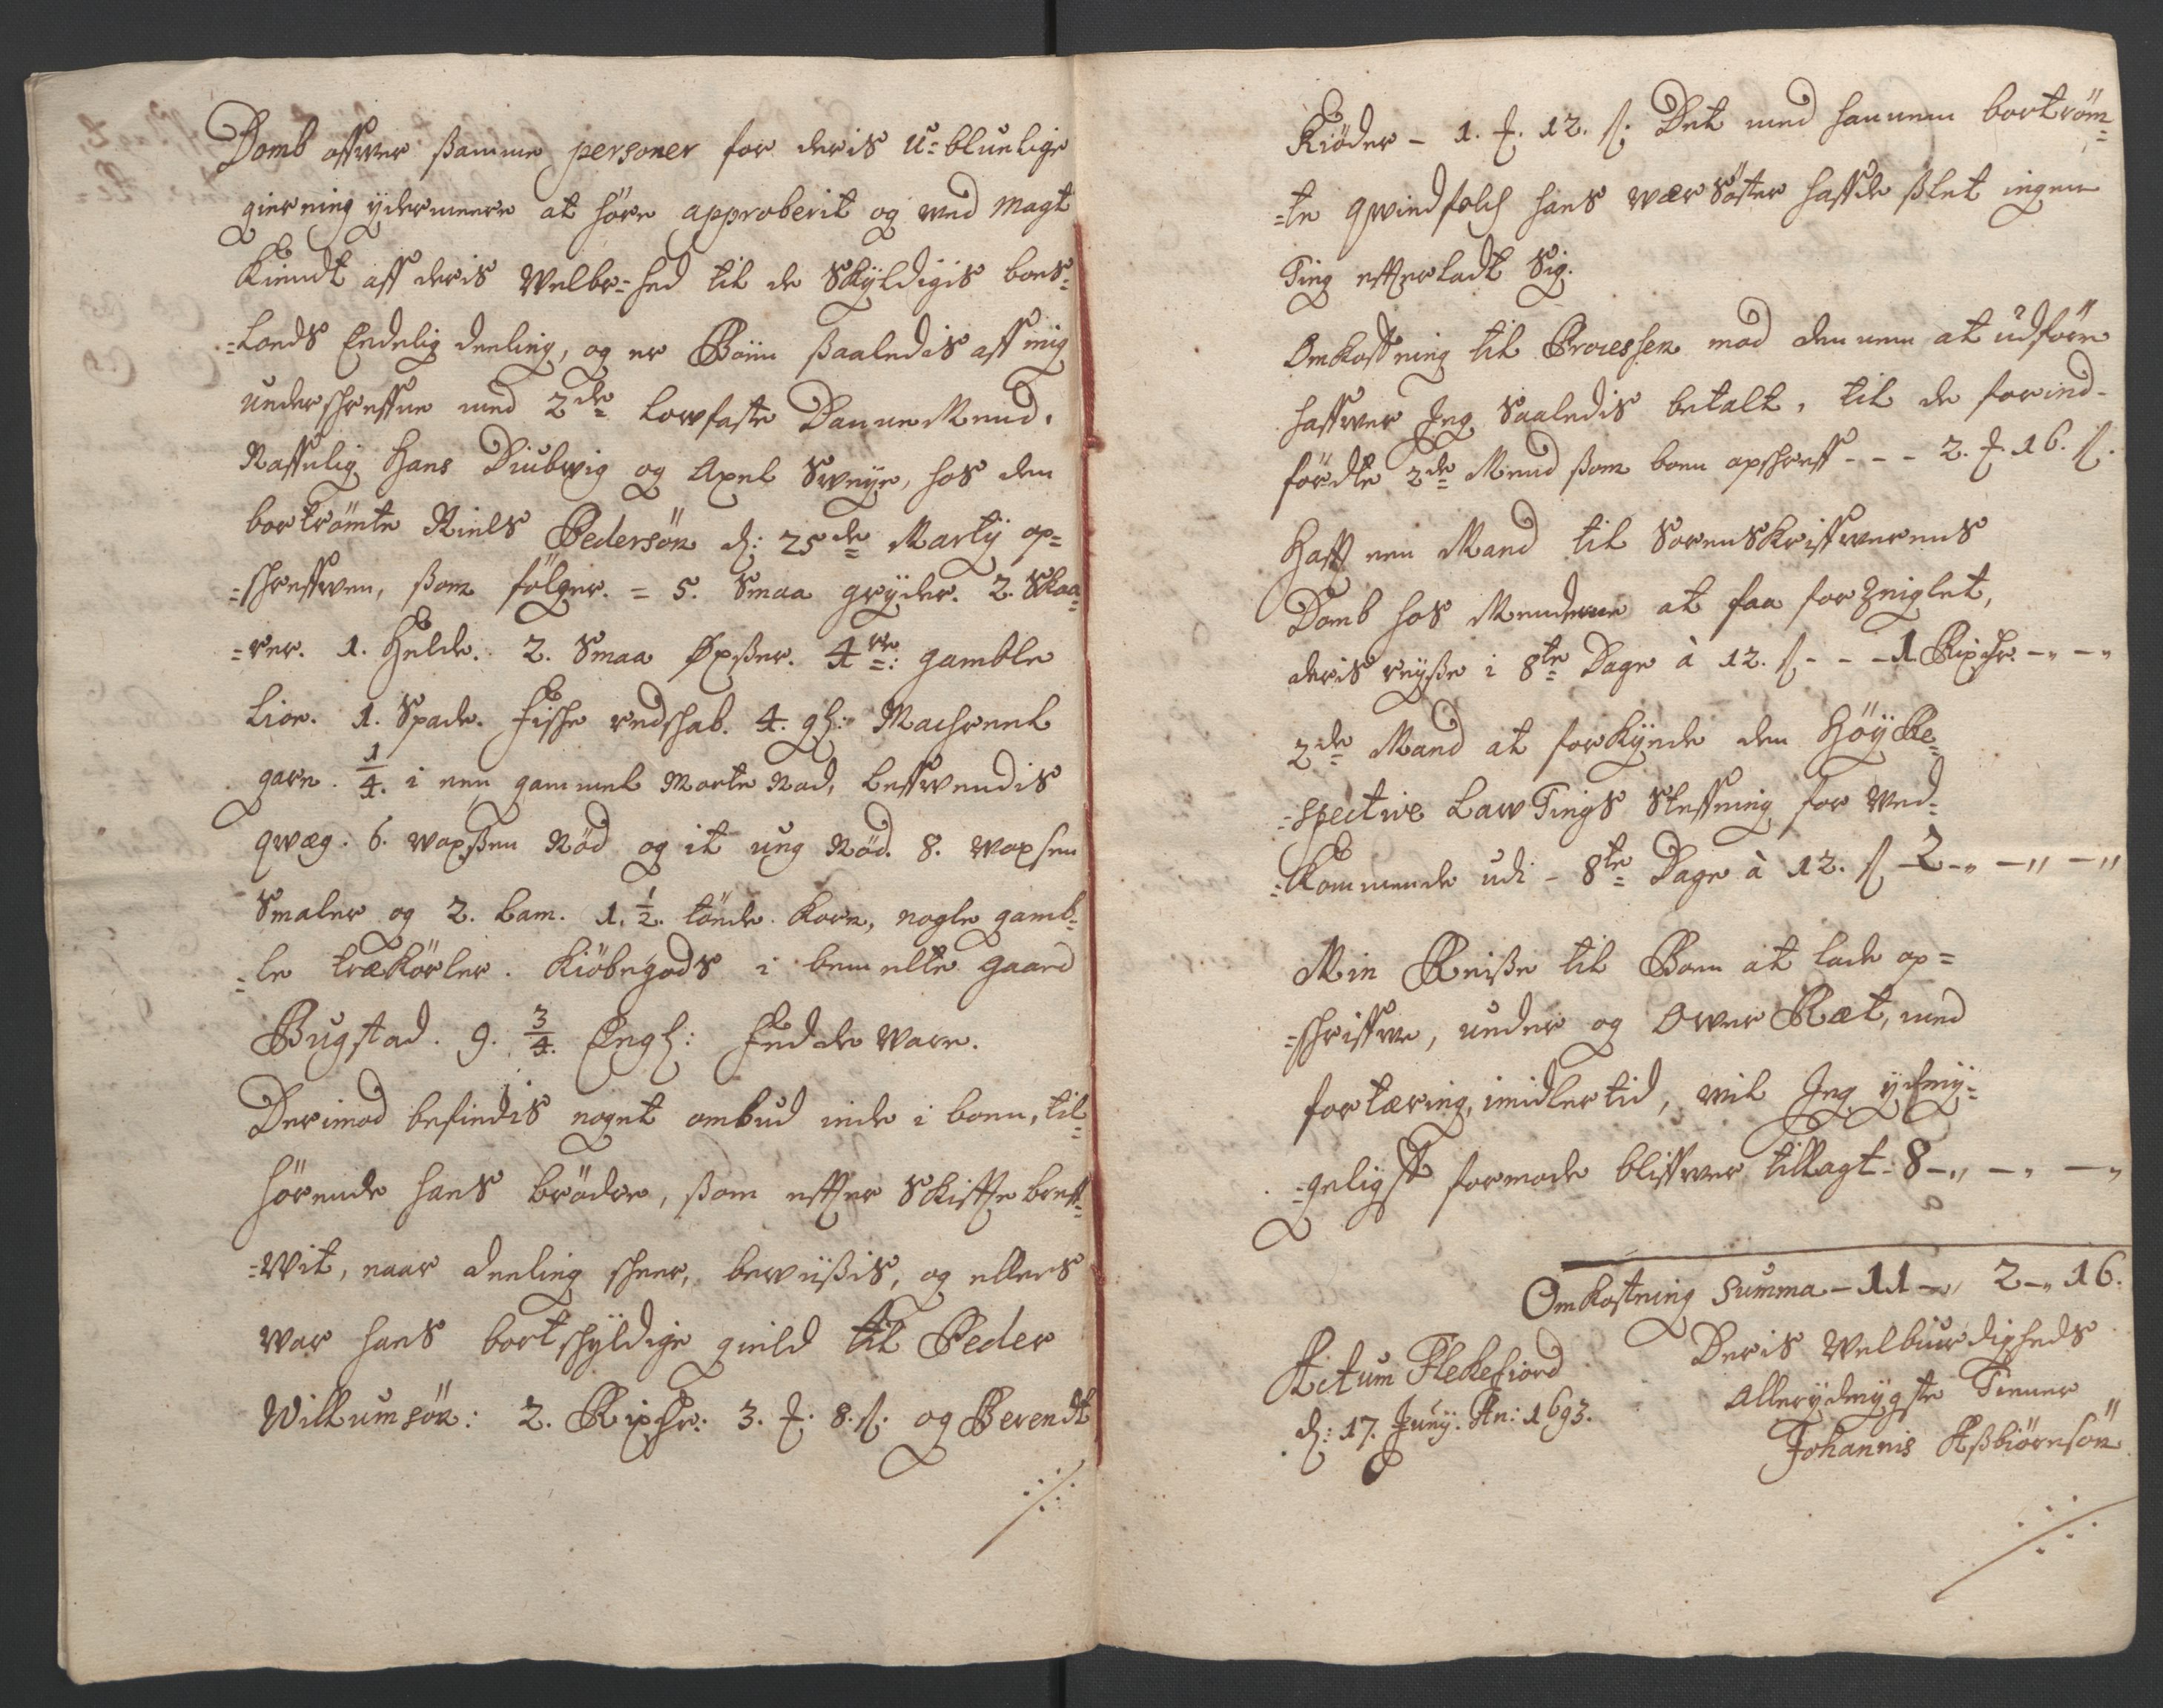 Domb offwer ßamme personer for deris u-bluelige
gierning ydermeere at høre approberit og wed magt
Kiendt aff deris Welbr=hed til de Skyldigis boes=
=lods Endelig deeling, og er Boen ßaaledis aff mig
underschreffne med 2de Lowfaste DanneMend,
Naffnlig Hans Diubwig og Axel Sweye, hos den
bortrömte Niels Pedersön d: 25de Martij op=
=schreffwen, ßom fölger. = 5. Smaa gryder. 2. Skaa=
=rer. 1. Helde. 2. Smaa Øxßer. 4re: gamble
Lior. 1. Spade. Fische redschab. 4. gl: Machreel
garn. 1/4. i een gammel Norte Nod, Leffwendis
qwæg. 6. woxßen Nöd og it ung Nöd. 8. woxsen
Smaler og 2. Lam. 1. 1/2. tönde Korn, nogle gamb=
=le trækörler. Kiöbegods i bemelte gaard
Bugstad. 9. 3/4. Engl: Fedde ware.
Derimod befindis noget ombud inde i boen, til=
hörende hans brödre, ßom effter Skiffte breff=
=wit, naar deeling scheer, bewiißis, og ellers
war hans bortschyldige gield til Peder
Willumsön: 2. Rixdr. 3. 8. og Berendt
Kiöder - 1. 12. Det med hannem bortröm=
=te qwindfolch hans wærsöster haffde ßlet ingen
Ting effterladt Sig.
Omkostning til Processen mod dennem at udföre
haffwer Jeg Saaledis betalt, til de forind-
fördte 2de Mend ßom boen opschreff - - - 2. 16.
Hafft een Mand til Sorenskriffwerens
Domb hos Menderne at faa forZeiglet,
deris reyße i 8te Dage à 12. - - - 1 Rixdr. - -
2de Mand at forkynde den HöyRe=
=spective LawTings Steffning for wed=
=Kommende udi - 8te Dage à 12. 2 - - -
Min Reiße til Boen at lade op=
=schriffwe, under og Ower Ræt, med
fortæring, imidlertid, wil Jeg ydmy=
=geligst formode bliffwer tillagt - 8 - - -
Omkostning Summa - 11 - 2 - 16.
Actum Flekefiord
d: 17. Junij. An: 1693.
Deris Welbiurdigheds
Allerydmygste Tiener
Johannis Aßbiörnsön